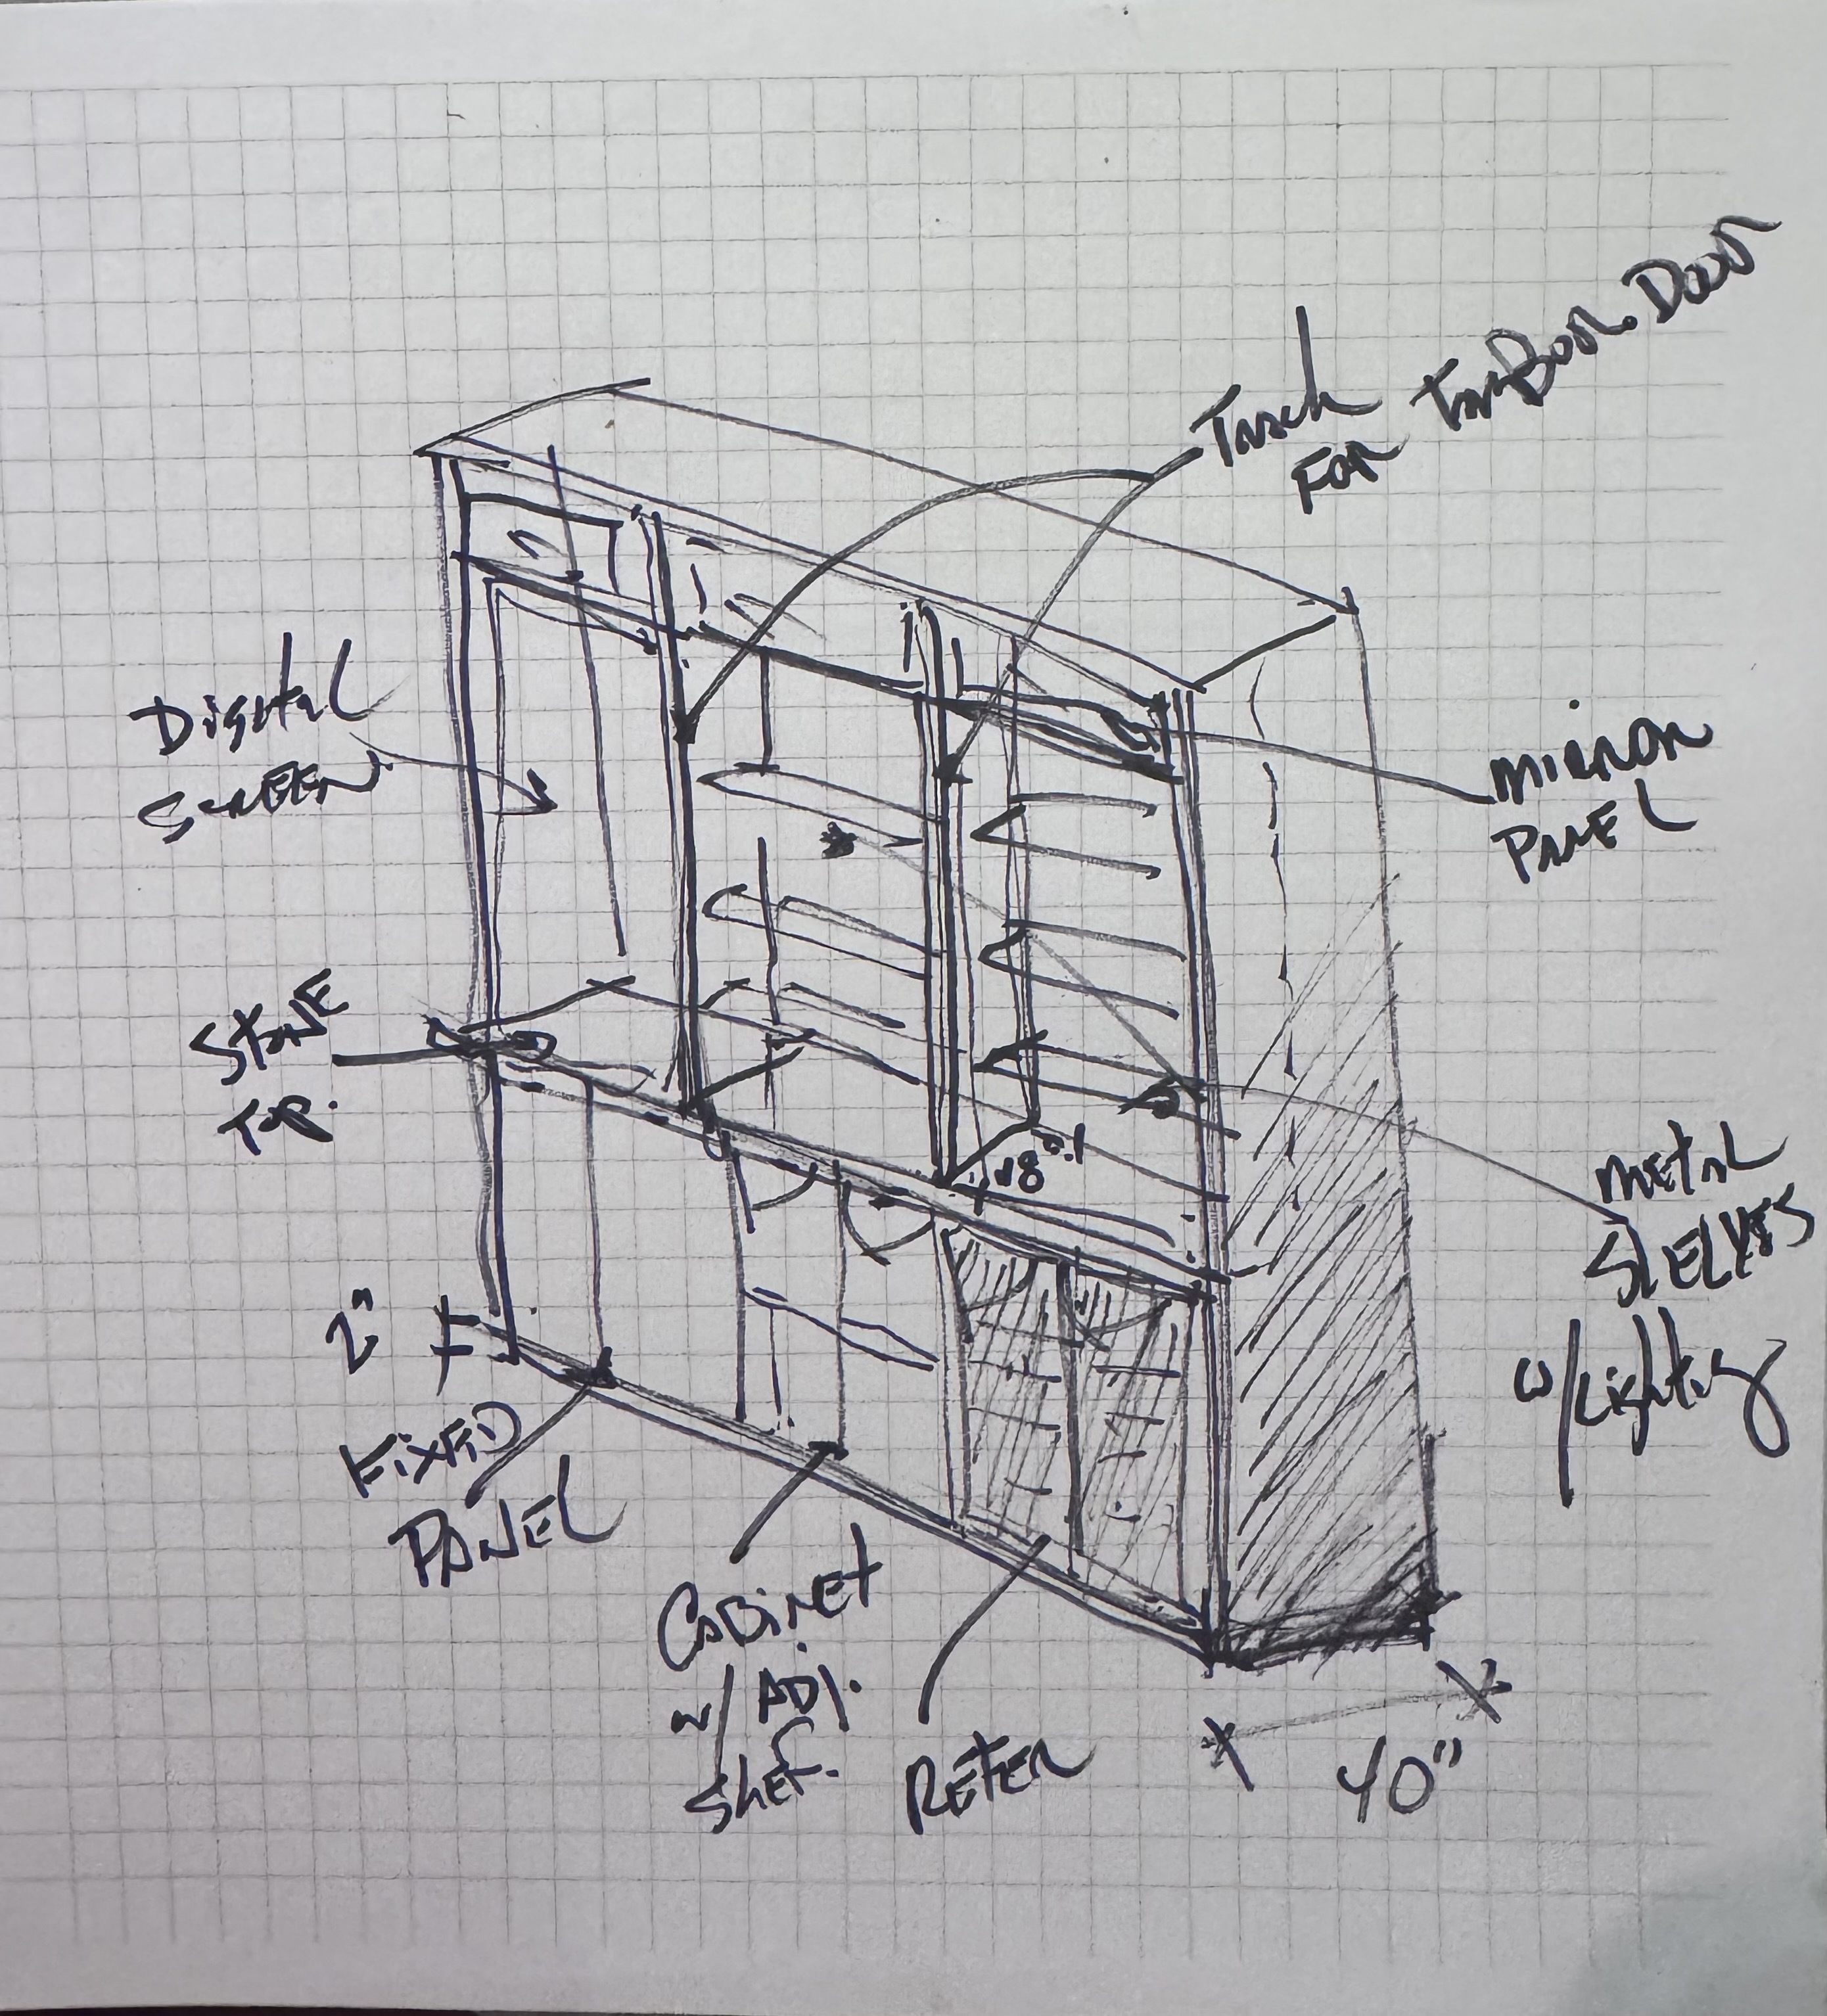 Track
For TamBour Door
Digital
SCREEN
MIRROR
PANEL
STONE
Top.
METAL
SHELVES
w/Lighting
2"
FIXED
PANEL
CABINET
w/ ADJ.
Shef.
REFER
40"